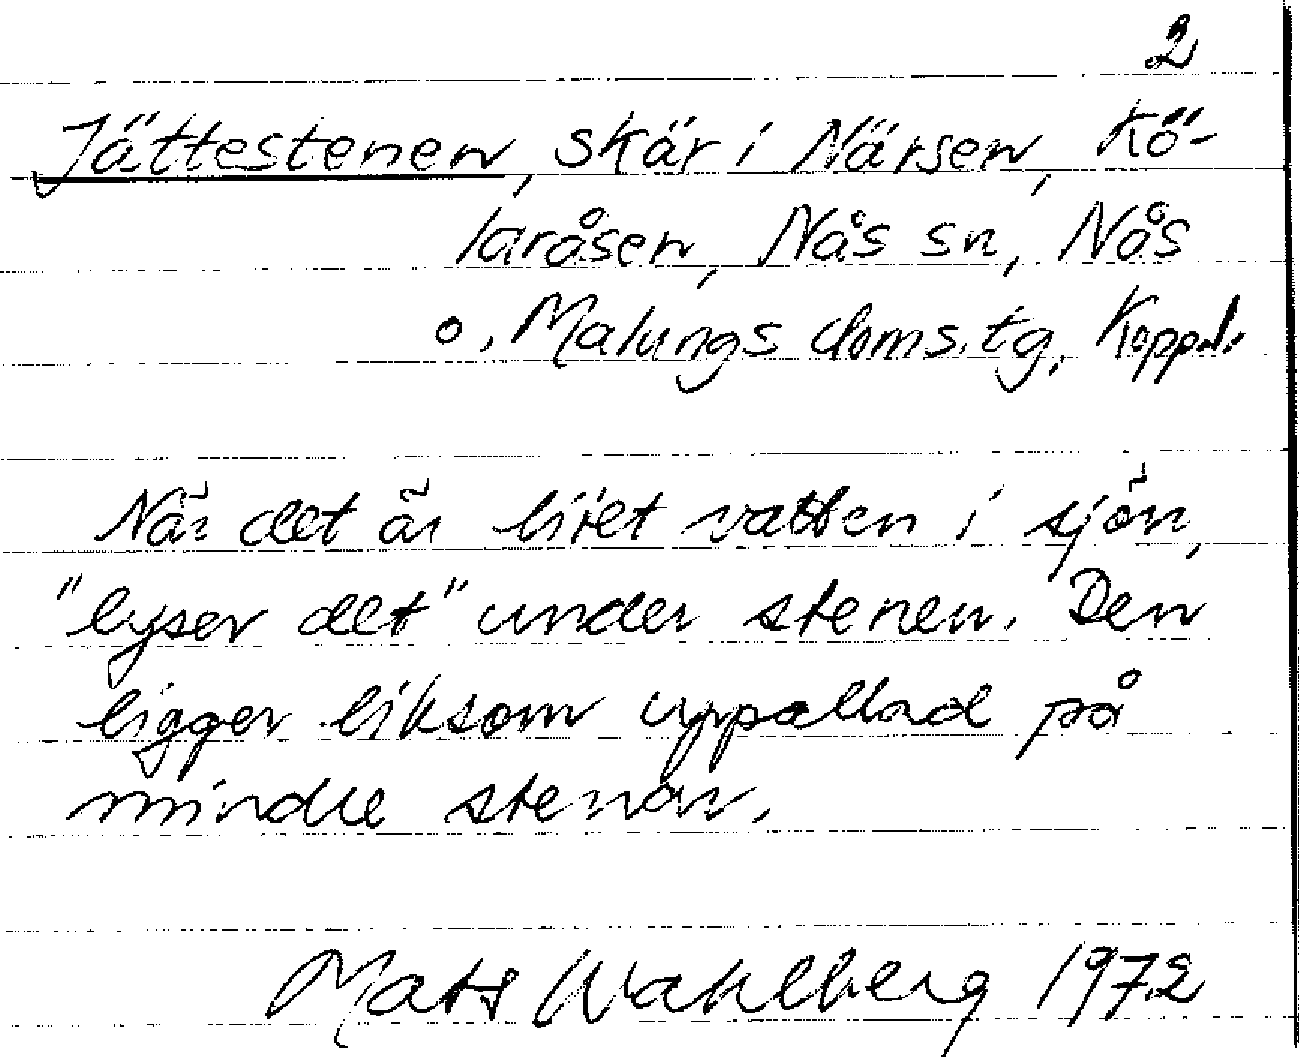 2
Jättestenen, skär i Närsen, Kö-
laråsen, Nås sn, Nås
o. Malungs doms.tg, Koppal.
När det är litet vatten i sjön,
"lyser det" under stenen. Den
ligger liksom uppallad på
mindre stenar.
Mats Wahlberg 1972